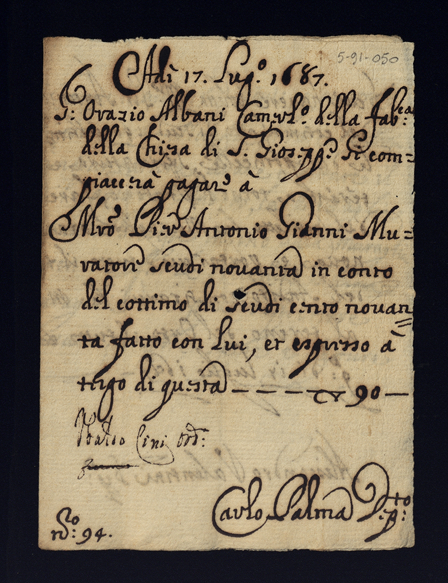 5-91-050
Adi 17. Lug.o 1687.
S.r Orazio Albani Camerl.o della fab.ca
della Chiesa di S. Giosepp.e si com=
piacerà pagare à
Mro Pier Antonio Gianni Mu=
ratore scudi novanta in conto
del cottimo di scudi cento novan=
ta fatto con lui, et espresso à
tergo di questa — — — 90 —
Cini
Carlo Palma Dep.to
N.o 94.